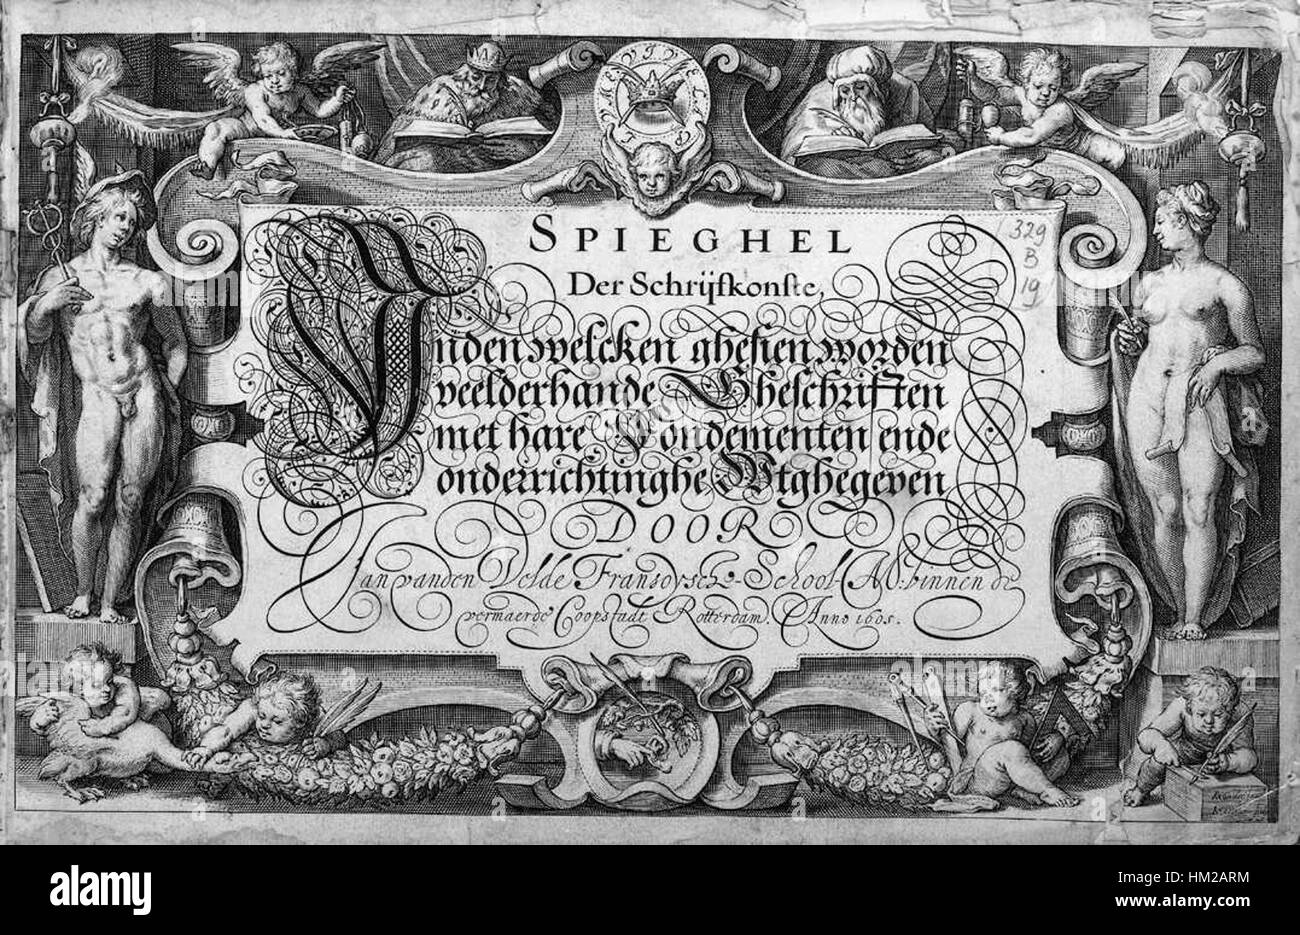 VIVE LA
SPIEGHEL
Der Schrijfkonste,
Inden welcken ghesien worden
veelderhande Gheschriften
met hare Fondementen ende
onderrichtinghe. Wtghegeven
DOOR
Jan vanden Velde Fransoysche-School-M: binnen de
vermaerde Coopstadt Rotterdam. Anno 1605.
1329
B
19
a
alamy stock photo
HM2ARM
www.alamy.com